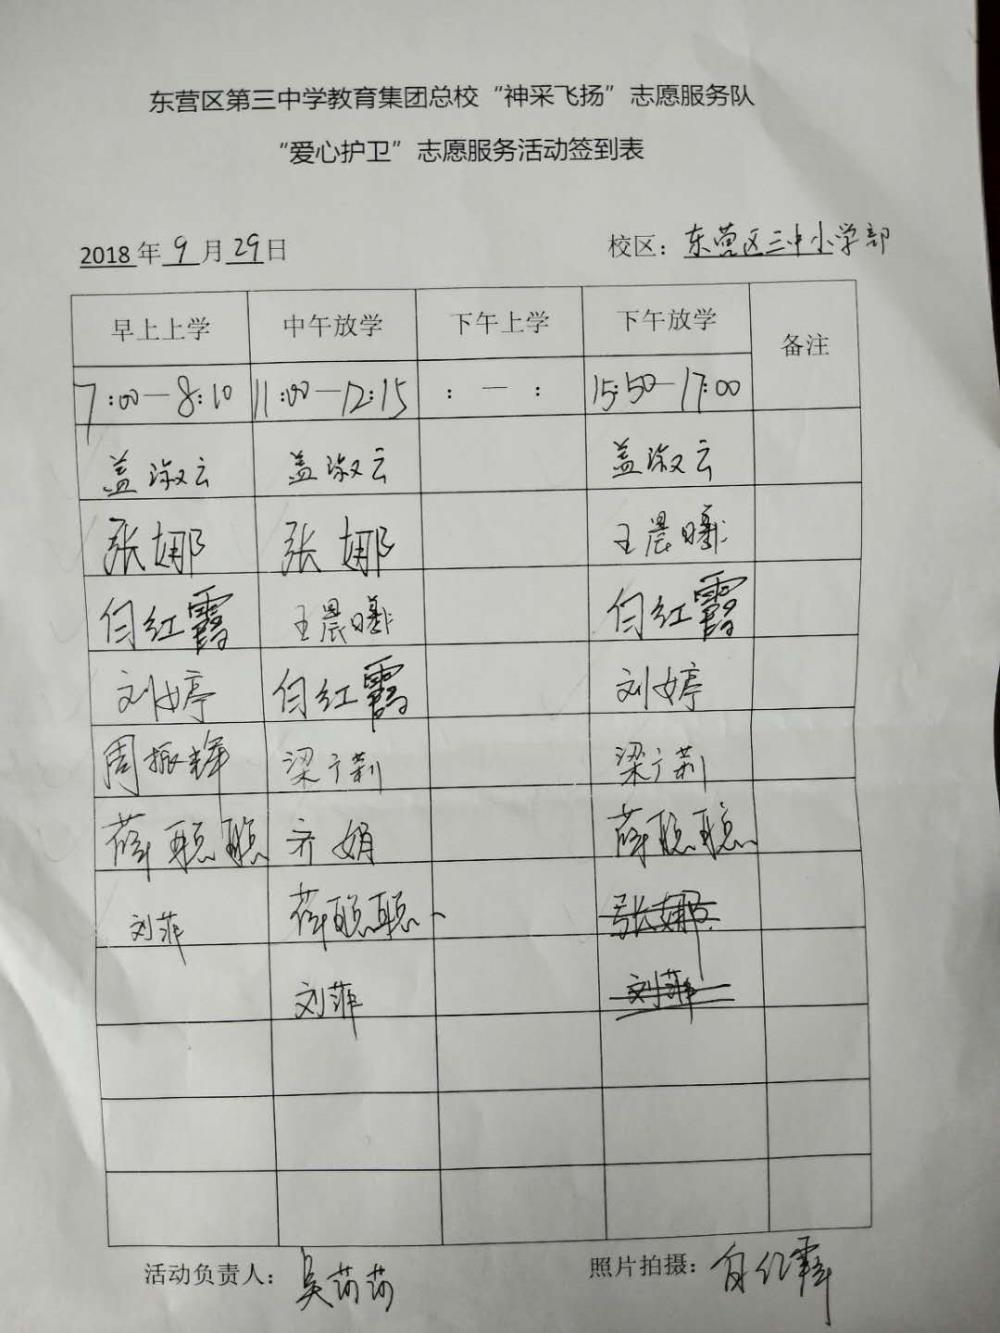 东营区第三中学教育集团总校“神采飞扬”志愿服务队
“爱心护卫”志愿服务活动签到表
2018年9月29日 校区：东营区三中小学部
早上上学 中午放学 下午上学 下午放学 备注
7:00—8:10 11:00—12:15 : — : 15:50—17:00
盖淑云 盖淑云 盖淑云
张娜 张娜 王晨曦
白红霞 王晨曦 白红霞
刘婷 白红霞 刘婷
周振辉 梁广莉 梁广莉
薛聪聪 齐娟 薛聪聪
刘菲 薛聪聪 张娜
刘菲 刘菲
活动负责人：吴莎莎 照片拍摄：白红霞